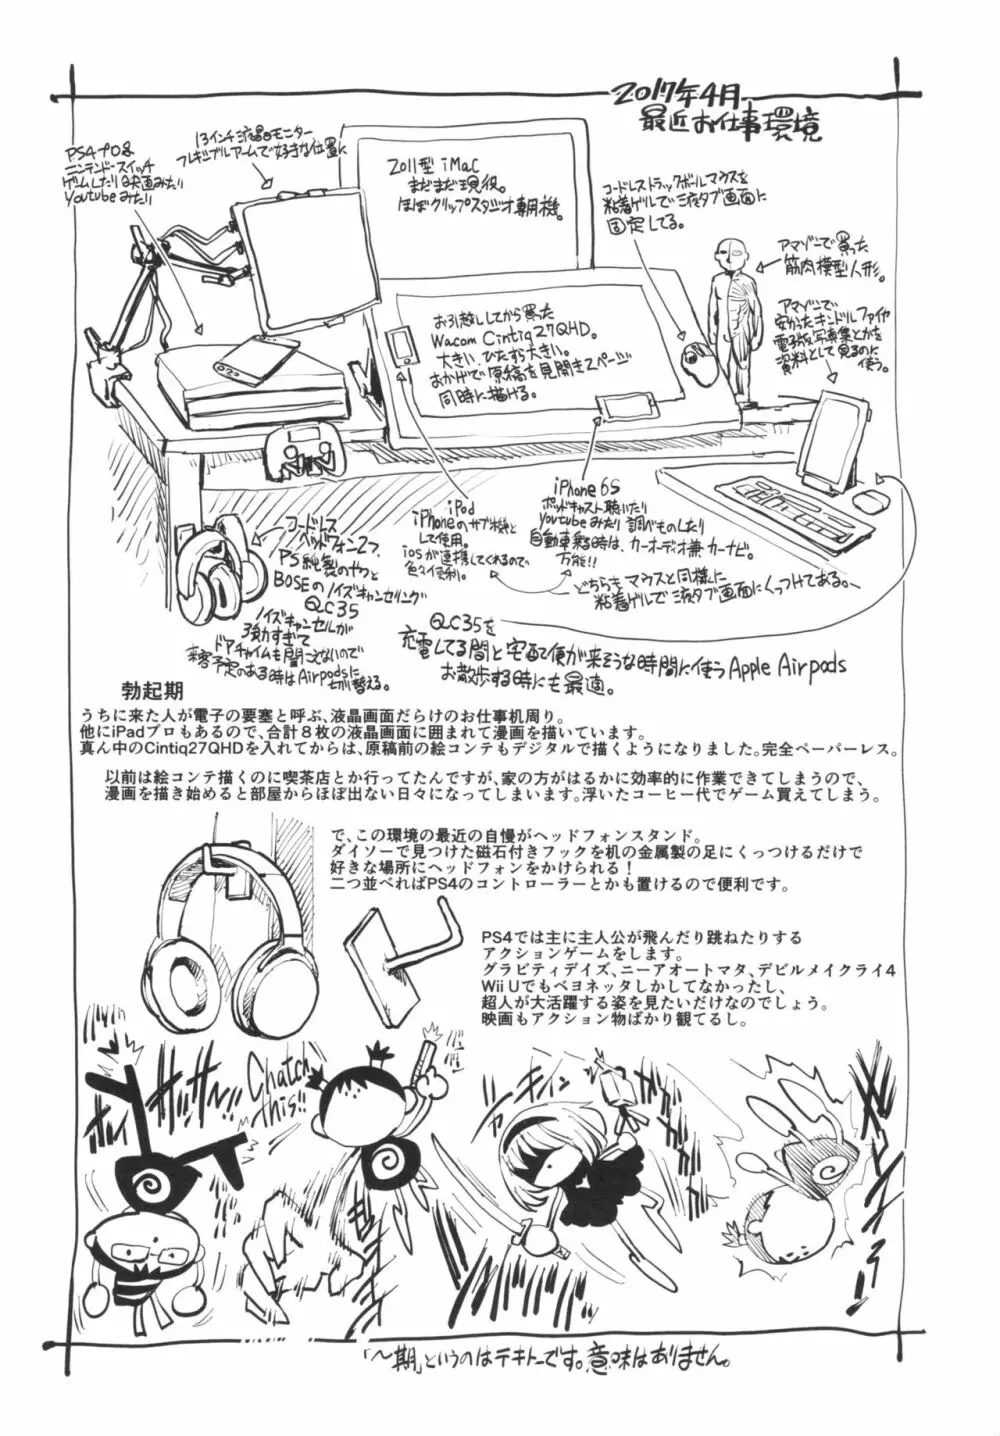 2017年4月
最近お仕事環境
PS4プロ&
ニンテンドースイッチ
ゲームしたり映画みたり
Youtubeみたり
13インチ液晶モニター
フレキシブルアームで好きな位置に
2011型 iMac
まだまだ現役。
ほぼクリップスタジオ専用機。
コードレストラックボールマウスを
粘着ゲルで液タブ画面に
固定してる。
アマゾンで買った
筋肉模型人形。
アマゾンで
安かったキンドルファイヤ
電子版写真集とかを
資料として見るのに
使う。
お引越ししてから買った
Wacom Cintiq27QHD。
大きい、ひたすら大きい。
おかげで原稿を見開き2ページ
同時に描ける。
iPod
iPhoneのサブ機と
して使用。
iosが連携してくれるので
色々便利。
iPhone6S
ポッドキャスト聴いたり
Youtubeみたり調べものしたり
自動車乗る時は、カーオーディオ兼カーナビ。
万能!!
どちらもマウスと同様に
粘着ゲルで液タブ画面にくっつけてある。
コードレス
ヘッドフォン2つ
PS純製のやつと
BOSEのノイズキャンセリング
QC35
ノイズキャンセルが
強力すぎて
ドアチャイムも聞こえないので
来客予定のある時はAirpodsに
切り替える。
QC35を
充電してる間と宅配便が来そうな時間に使うApple Airpods
お散歩する時にも最適。
勃起期
うちに来た人が電子の要塞と呼ぶ、液晶画面だらけのお仕事机周り。
他にiPadプロもあるので、合計８枚の液晶画面に囲まれて漫画を描いています。
真ん中のCintiq27QHDを入れてからは、原稿前の絵コンテもデジタルで描くようになりました。完全ペーパーレス。
以前は絵コンテ描くのに喫茶店とか行ってたんですが、家の方がはるかに効率的に作業できてしまうので、
漫画を描き始めると部屋からほぼ出ない日々になってしまいます。浮いたコーヒー代でゲーム買えてしまう。
で、この環境の最近の自慢がヘッドフォンスタンド。
ダイソーで見つけた磁石付きフックを机の金属製の足にくっつけるだけで
好きな場所にヘッドフォンをかけられる！
二つ並べればPS4のコントローラーとかも置けるので便利です。
PS4では主に主人公が飛んだり跳ねたりする
アクションゲームをします。
グラビティデイズ、ニーアオートマタ、デビルメイクライ4
Wii Uでもベヨネッタしかしてなかったし、
超人が大活躍する姿を見たいだけなのでしょう。
映画もアクション物ばかり観てるし。
Chatch
this!!
「～期」というのはテキトーです。意味はありません。